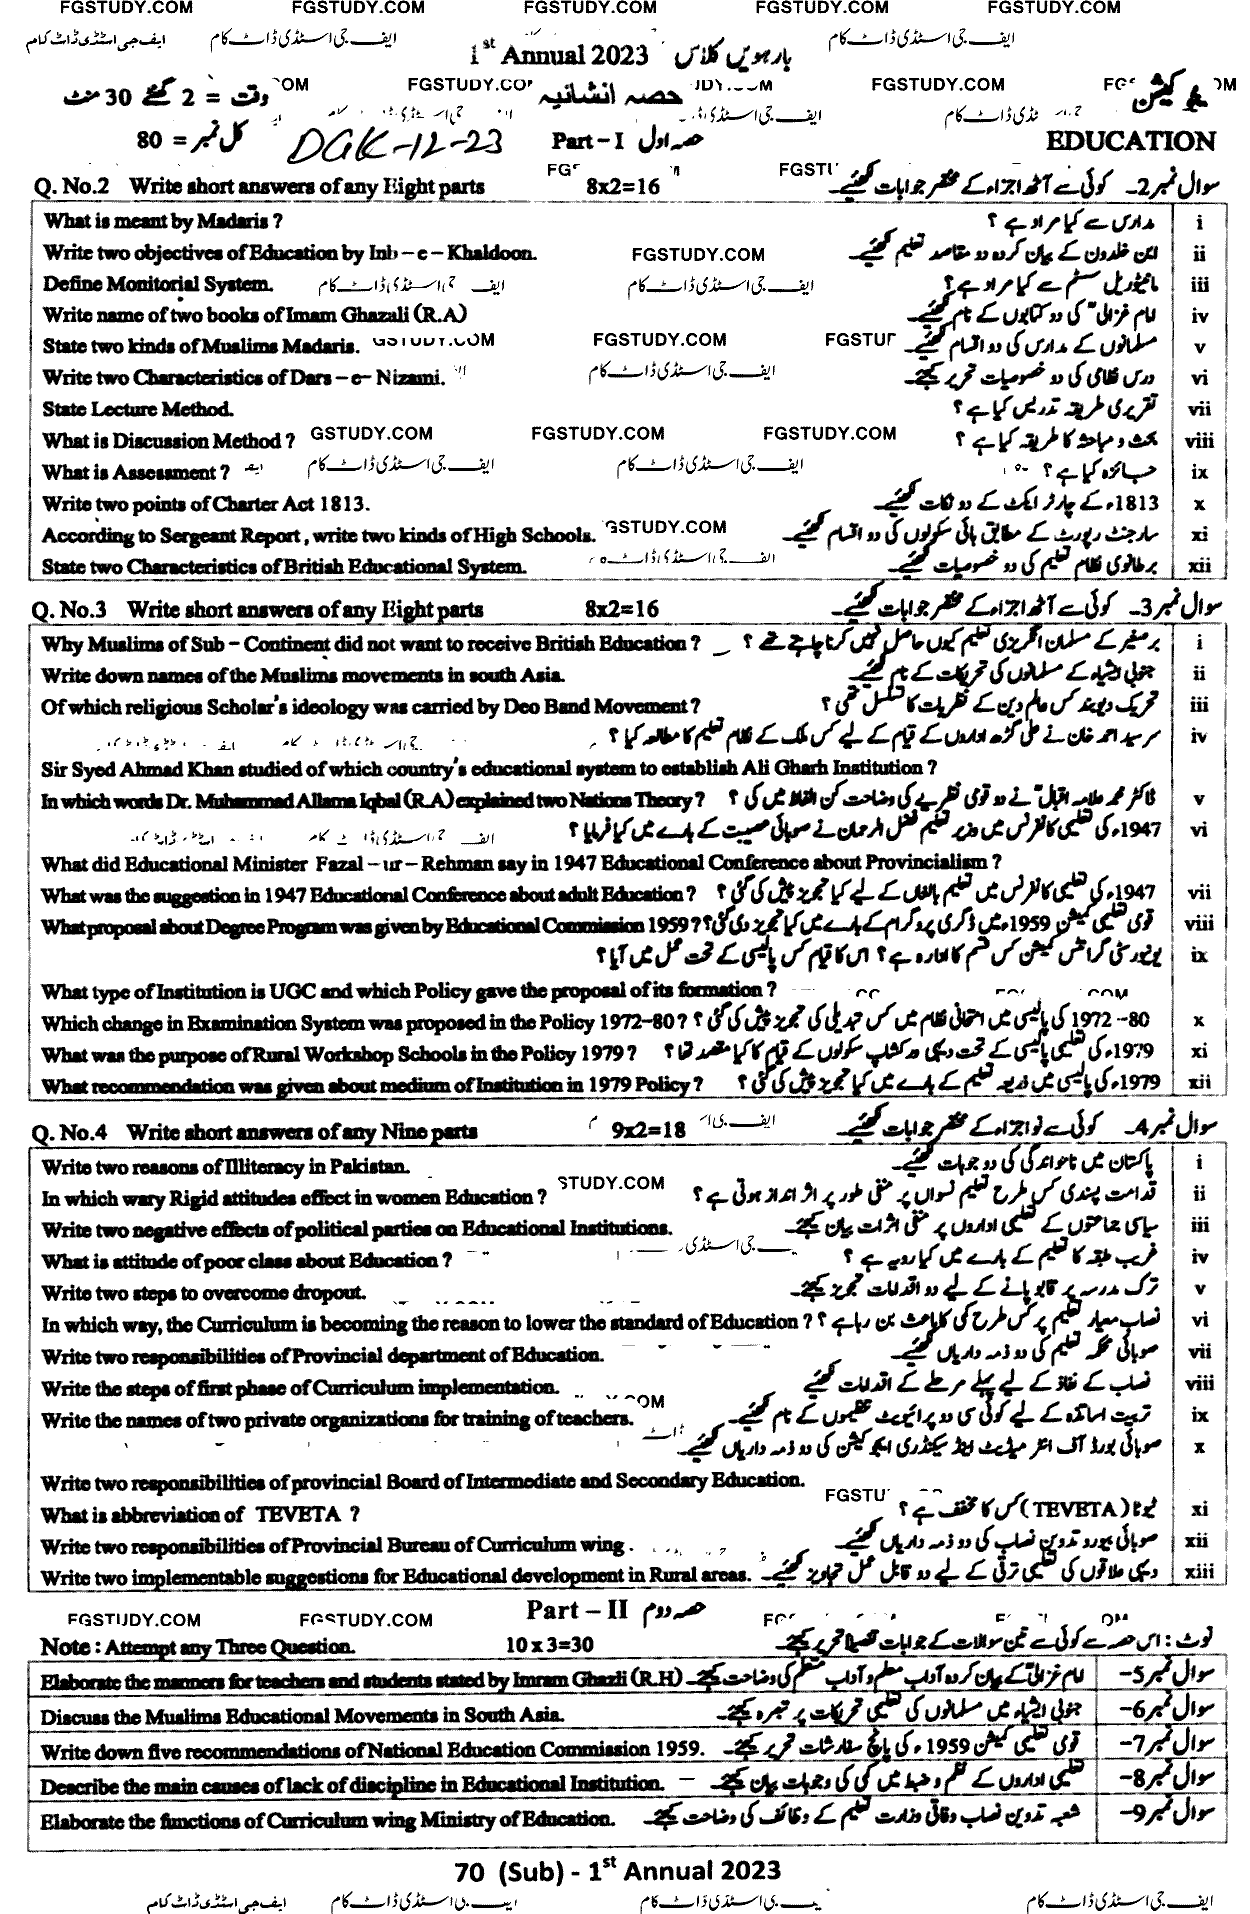 FGSTUDY.COM FGSTUDY.COM FGSTUDY.COM FGSTUDY.COM FGSTUDY.COM
ایف جی اسٹڈی ڈاٹ کام ایف جی اسٹڈی ڈاٹ کام ایف جی اسٹڈی ڈاٹ کام
1st Annual 2023 بارہویں کلاس
FGSTUDY.COM FGSTUDY.COM
ایجوکیشن حصہ انشائیہ وقت = 2 گھنٹے 30 منٹ
EDUCATION Part – I حصہ اول DGK-12-23 کل نمبر = 80
Q. No.2 Write short answers of any Eight parts 8x2=16 سوال نمبر 2۔ کوئی سے آٹھ اجزاء کے مختصر جوابات لکھئیے۔
What is meant by Madaris ? مدارس سے کیا مراد ہے ؟ i
Write two objectives of Education by Inb – e – Khaldoon. ابن خلدون کے بیان کردہ دو مقاصد تعلیم لکھئیے۔ ii
Define Monitorial System. مانیٹوریل سسٹم سے کیا مراد ہے؟ iii
Write name of two books of Imam Ghazali (R.A) امام غزالی" کی دو کتابوں کے نام لکھئیے۔ iv
State two kinds of Muslims Madaris. مسلمانوں کے مدارس کی دو اقسام لکھئیے۔ v
Write two Characteristics of Dars – e – Nizami. درس نظامی کی دو خصوصیات تحریر کیجئے۔ vi
State Lecture Method. تقریری طریقہ تدریس کیا ہے ؟ vii
What is Discussion Method ? بحث و مباحثہ کا طریقہ کیا ہے ؟ viii
What is Assessment ? جائزہ کیا ہے ؟ ix
Write two points of Charter Act 1813. 1813ء کے چارٹر ایکٹ کے دو نکات لکھئیے۔ x
According to Sergeant Report , write two kinds of High Schools. سارجنٹ رپورٹ کے مطابق ہائی سکولوں کی دو اقسام لکھئیے۔ xi
State two Characteristics of British Educational System. برطانوی نظام تعلیم کی دو خصوصیات لکھئیے۔ xii
Q. No.3 Write short answers of any Eight parts 8x2=16 سوال نمبر 3۔ کوئی سے آٹھ اجزاء کے مختصر جوابات لکھئیے۔
Why Muslims of Sub – Continent did not want to receive British Education ? برصغیر کے مسلمان انگریزی تعلیم کیوں حاصل نہیں کرنا چاہتے تھے ؟ i
Write down names of the Muslims movements in south Asia. جنوبی ایشیاء کے مسلمانوں کی تحریکات کے نام لکھئیے۔ ii
Of which religious Scholar's ideology was carried by Deo Band Movement ? تحریک دیوبند کس عالم دین کے نظریات کا تسلسل تھی ؟ iii
سر سید احمد خان نے علی گڑھ اداروں کے قیام کے لیے کس ملک کے نظام تعلیم کا مطالعہ کیا ؟ iv
Sir Syed Ahmad Khan studied of which country's educational system to establish Ali Gharh Institution ?
In which words Dr. Muhammad Allama Iqbal (R.A) explained two Nations Theory ? ڈاکٹر محمد علامہ اقبال" نے دو قومی نظریے کی وضاحت کن الفاظ میں کی ؟ v
1947ء کی تعلیمی کانفرنس میں وزیر تعلیم فضل الرحمان نے صوبائی عصبیت کے بارے میں کیا فرمایا ؟ vi
What did Educational Minister Fazal – ur – Rehman say in 1947 Educational Conference about Provincialism ?
What was the suggestion in 1947 Educational Conference about adult Education ? 1947ء کی تعلیمی کانفرنس میں تعلیم بالغاں کے لیے کیا تجویز پیش کی گئی ؟ vii
What proposal about Degree Program was given by Educational Commission 1959 ? قومی تعلیمی کمیشن 1959ء میں ڈگری پروگرام کے بارے میں کیا تجویز دی گئی؟ viii
یونیورسٹی گرانٹس کمیشن کس قسم کا ادارہ ہے ؟ اس کا قیام کس پالیسی کے تحت عمل میں آیا ؟ ix
What type of Institution is UGC and which Policy gave the proposal of its formation ?
Which change in Examination System was proposed in the Policy 1972-80 ? 1972-80 کی پالیسی میں امتحانی نظام میں کس تبدیلی کی تجویز پیش کی گئی ؟ x
What was the purpose of Rural Workshop Schools in the Policy 1979 ? 1979ء کی تعلیمی پالیسی کے تحت دیہی ورکشاپ سکولوں کے قیام کا کیا مقصد تھا ؟ xi
What recommendation was given about medium of Institution in 1979 Policy ? 1979ء کی پالیسی میں ذریعہ تعلیم کے بارے میں کیا تجویز پیش کی گئی ؟ xii
Q. No.4 Write short answers of any Nine parts 9x2=18 سوال نمبر 4۔ کوئی سے نو اجزاء کے مختصر جوابات لکھئیے۔
Write two reasons of Illiteracy in Pakistan. پاکستان میں ناخواندگی کی دو وجوہات لکھئیے۔ i
In which wary Rigid attitudes effect in women Education ? قدامت پسندی کس طرح تعلیم نسواں پر منفی طور پر اثر انداز ہوتی ہے ؟ ii
Write two negative effects of political parties on Educational Institutions. سیاسی جماعتوں کے تعلیمی اداروں پر منفی اثرات بیان کیجئے۔ iii
What is attitude of poor class about Education ? غریب طبقہ کا تعلیم کے بارے میں کیا رویہ ہے ؟ iv
Write two steps to overcome dropout. ترک مدرسہ پر قابو پانے کے لیے دو اقدامات تجویز کیجئے۔ v
In which way, the Curriculum is becoming the reason to lower the standard of Education ? نصاب معیار تعلیم پر کس طرح کمی کا باعث بن رہا ہے ؟ vi
Write two responsibilities of Provincial department of Education. صوبائی محکمہ تعلیم کی دو ذمہ داریاں لکھئیے۔ vii
Write the steps of first phase of Curriculum implementation. نصاب کے نفاذ کے لیے پہلے مرحلے کے اقدامات لکھئیے viii
Write the names of two private organizations for training of teachers. تربیت اساتذہ کے لیے کوئی سی دو پرائیویٹ تنظیموں کے نام لکھئیے۔ ix
صوبائی بورڈ آف انٹر میڈیٹ اینڈ سیکنڈری ایجوکیشن کی دو ذمہ داریاں لکھئیے۔ x
Write two responsibilities of provincial Board of Intermediate and Secondary Education.
What is abbreviation of TEVETA ? ٹیوٹا (TEVETA) کس کا مخفف ہے ؟ xi
Write two responsibilities of Provincial Bureau of Curriculum wing . صوبائی بیورو تدوین نصاب کی دو ذمہ داریاں لکھئیے۔ xii
Write two implementable suggestions for Educational development in Rural areas. دیہی علاقوں کی تعلیمی ترقی کے لیے دو قابل عمل تجاویز لکھئیے۔ xiii
FGSTUDY.COM FGSTUDY.COM Part – II حصہ دوم
Note : Attempt any Three Question. 10 x 3=30 نوٹ : اس حصہ سے کوئی سے تین سوالات کے جوابات تفصیلاً تحریر کیجئے۔
Elaborate the manners for teachers and students stated by Imram Ghazli (R.H) امام غزالی" کے بیان کردہ آداب معلم و آداب متعلم کی وضاحت کیجئے۔ سوال نمبر 5-
Discuss the Muslims Educational Movements in South Asia. جنوبی ایشیاء میں مسلمانوں کی تعلیمی تحریکات پر تبصرہ کیجئے۔ سوال نمبر 6-
Write down five recommendations of National Education Commission 1959. قومی تعلیمی کمیشن 1959ء کی پانچ سفارشات تحریر کیجئے۔ سوال نمبر 7-
Describe the main causes of lack of discipline in Educational Institution. تعلیمی اداروں کے نظم و ضبط میں کمی کی وجوہات بیان کیجئے۔ سوال نمبر 8-
Elaborate the functions of Curriculum wing Ministry of Education. شعبہ تدوین نصاب وفاقی وزارت تعلیم کے وظائف کی وضاحت کیجئے۔ سوال نمبر 9-
70 (Sub) - 1st Annual 2023
ایف جی اسٹڈی ڈاٹ کام